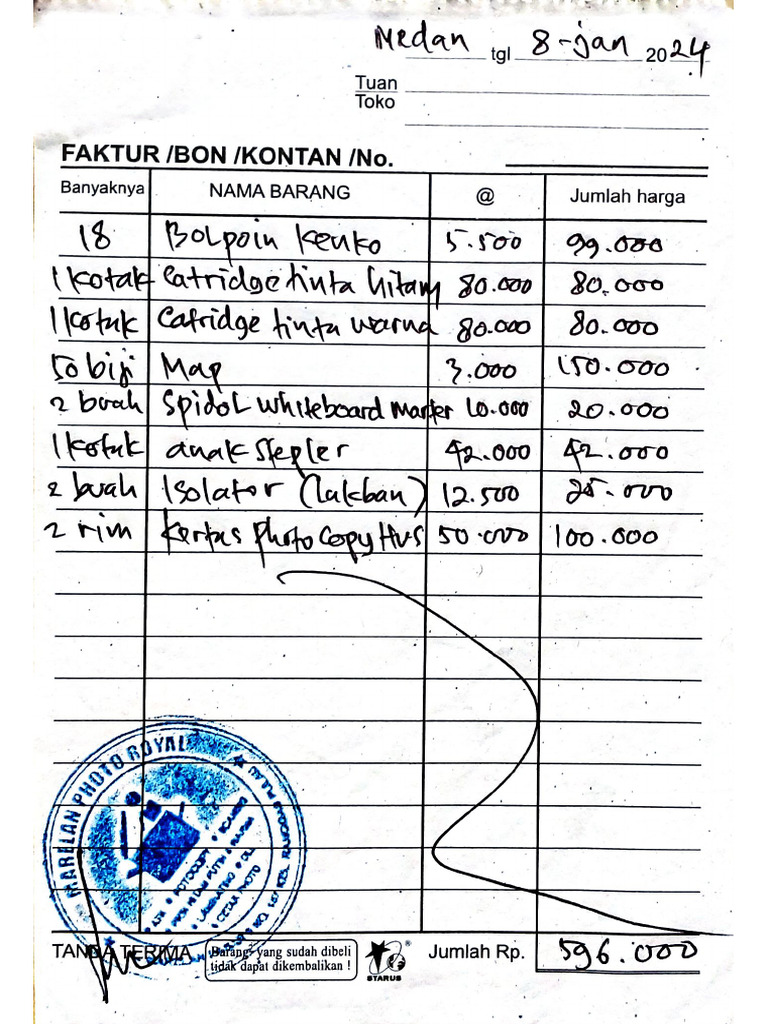 Medan tgl 8-jan 2024
Tuan
Toko
FAKTUR /BON /KONTAN /No.
Banyaknya NAMA BARANG @ Jumlah harga
18 Bolpoin Kenko 5.500 99.000
1 Kotak Catridge tinta hitam 80.000 80.000
1 Kotak Catridge tinta warna 80.000 80.000
50 biji Map 3.000 150.000
2 buah Spidol whiteboard marker 10.000 20.000
1 kotak anak stepler 42.000 42.000
2 buah Isolator (lakban) 12.500 25.000
2 rim Kertas photo copy Hvs 50.000 100.000
MARELAN PHOTO ROYAL
TANDA TERIMA
Barang yang sudah dibeli
tidak dapat dikembalikan !
STARUS
Jumlah Rp. 596.000